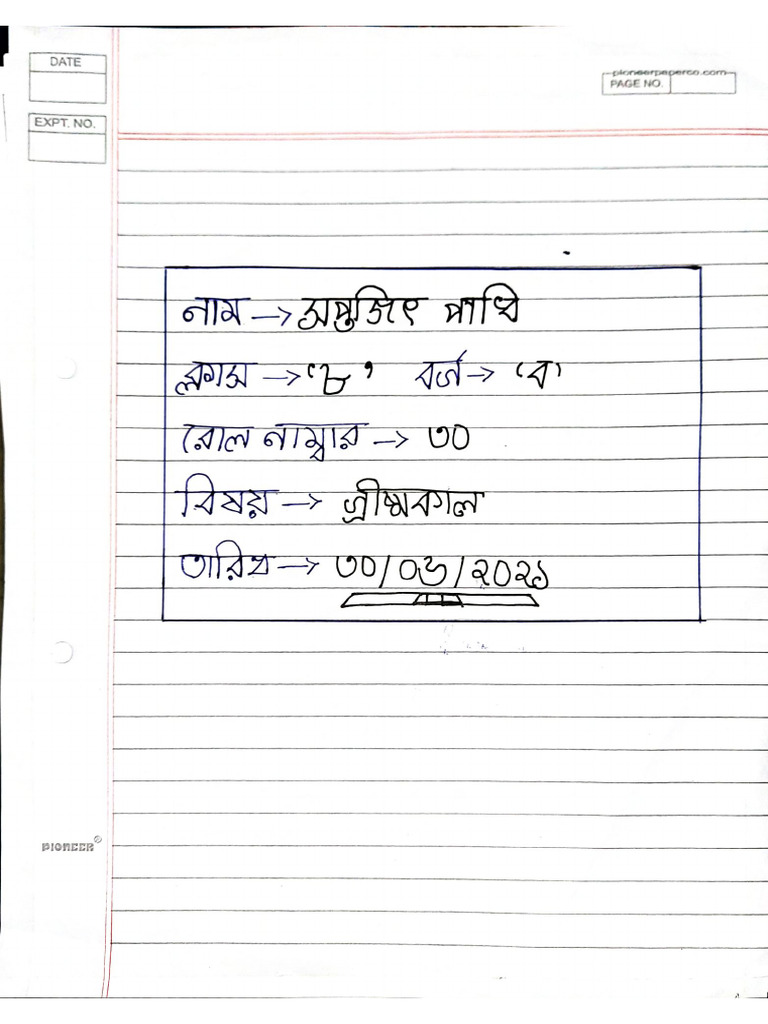 DATE
pioneerpaperco.com
PAGE NO.
EXPT. NO.
নাম → সপ্তজিৎ পাখি
ক্লাস → ‘৮’ বর্গ → ‘ব’
রোল নাম্বার → ৩০
বিষয় → গ্রীষ্মকাল
তারিখ → ৩০/০৬/২০২১
PIONEER®